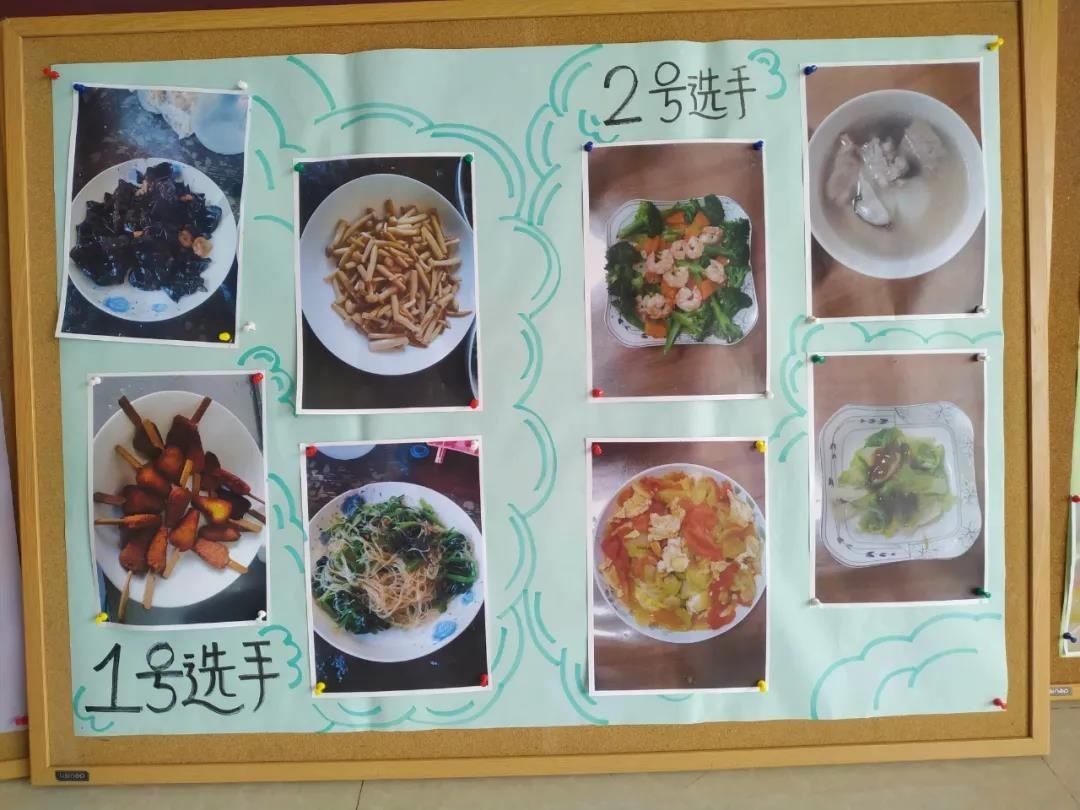 2号选手
1号选手